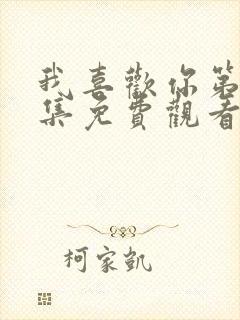 我喜歡你第
集免費觀看
柯家凱